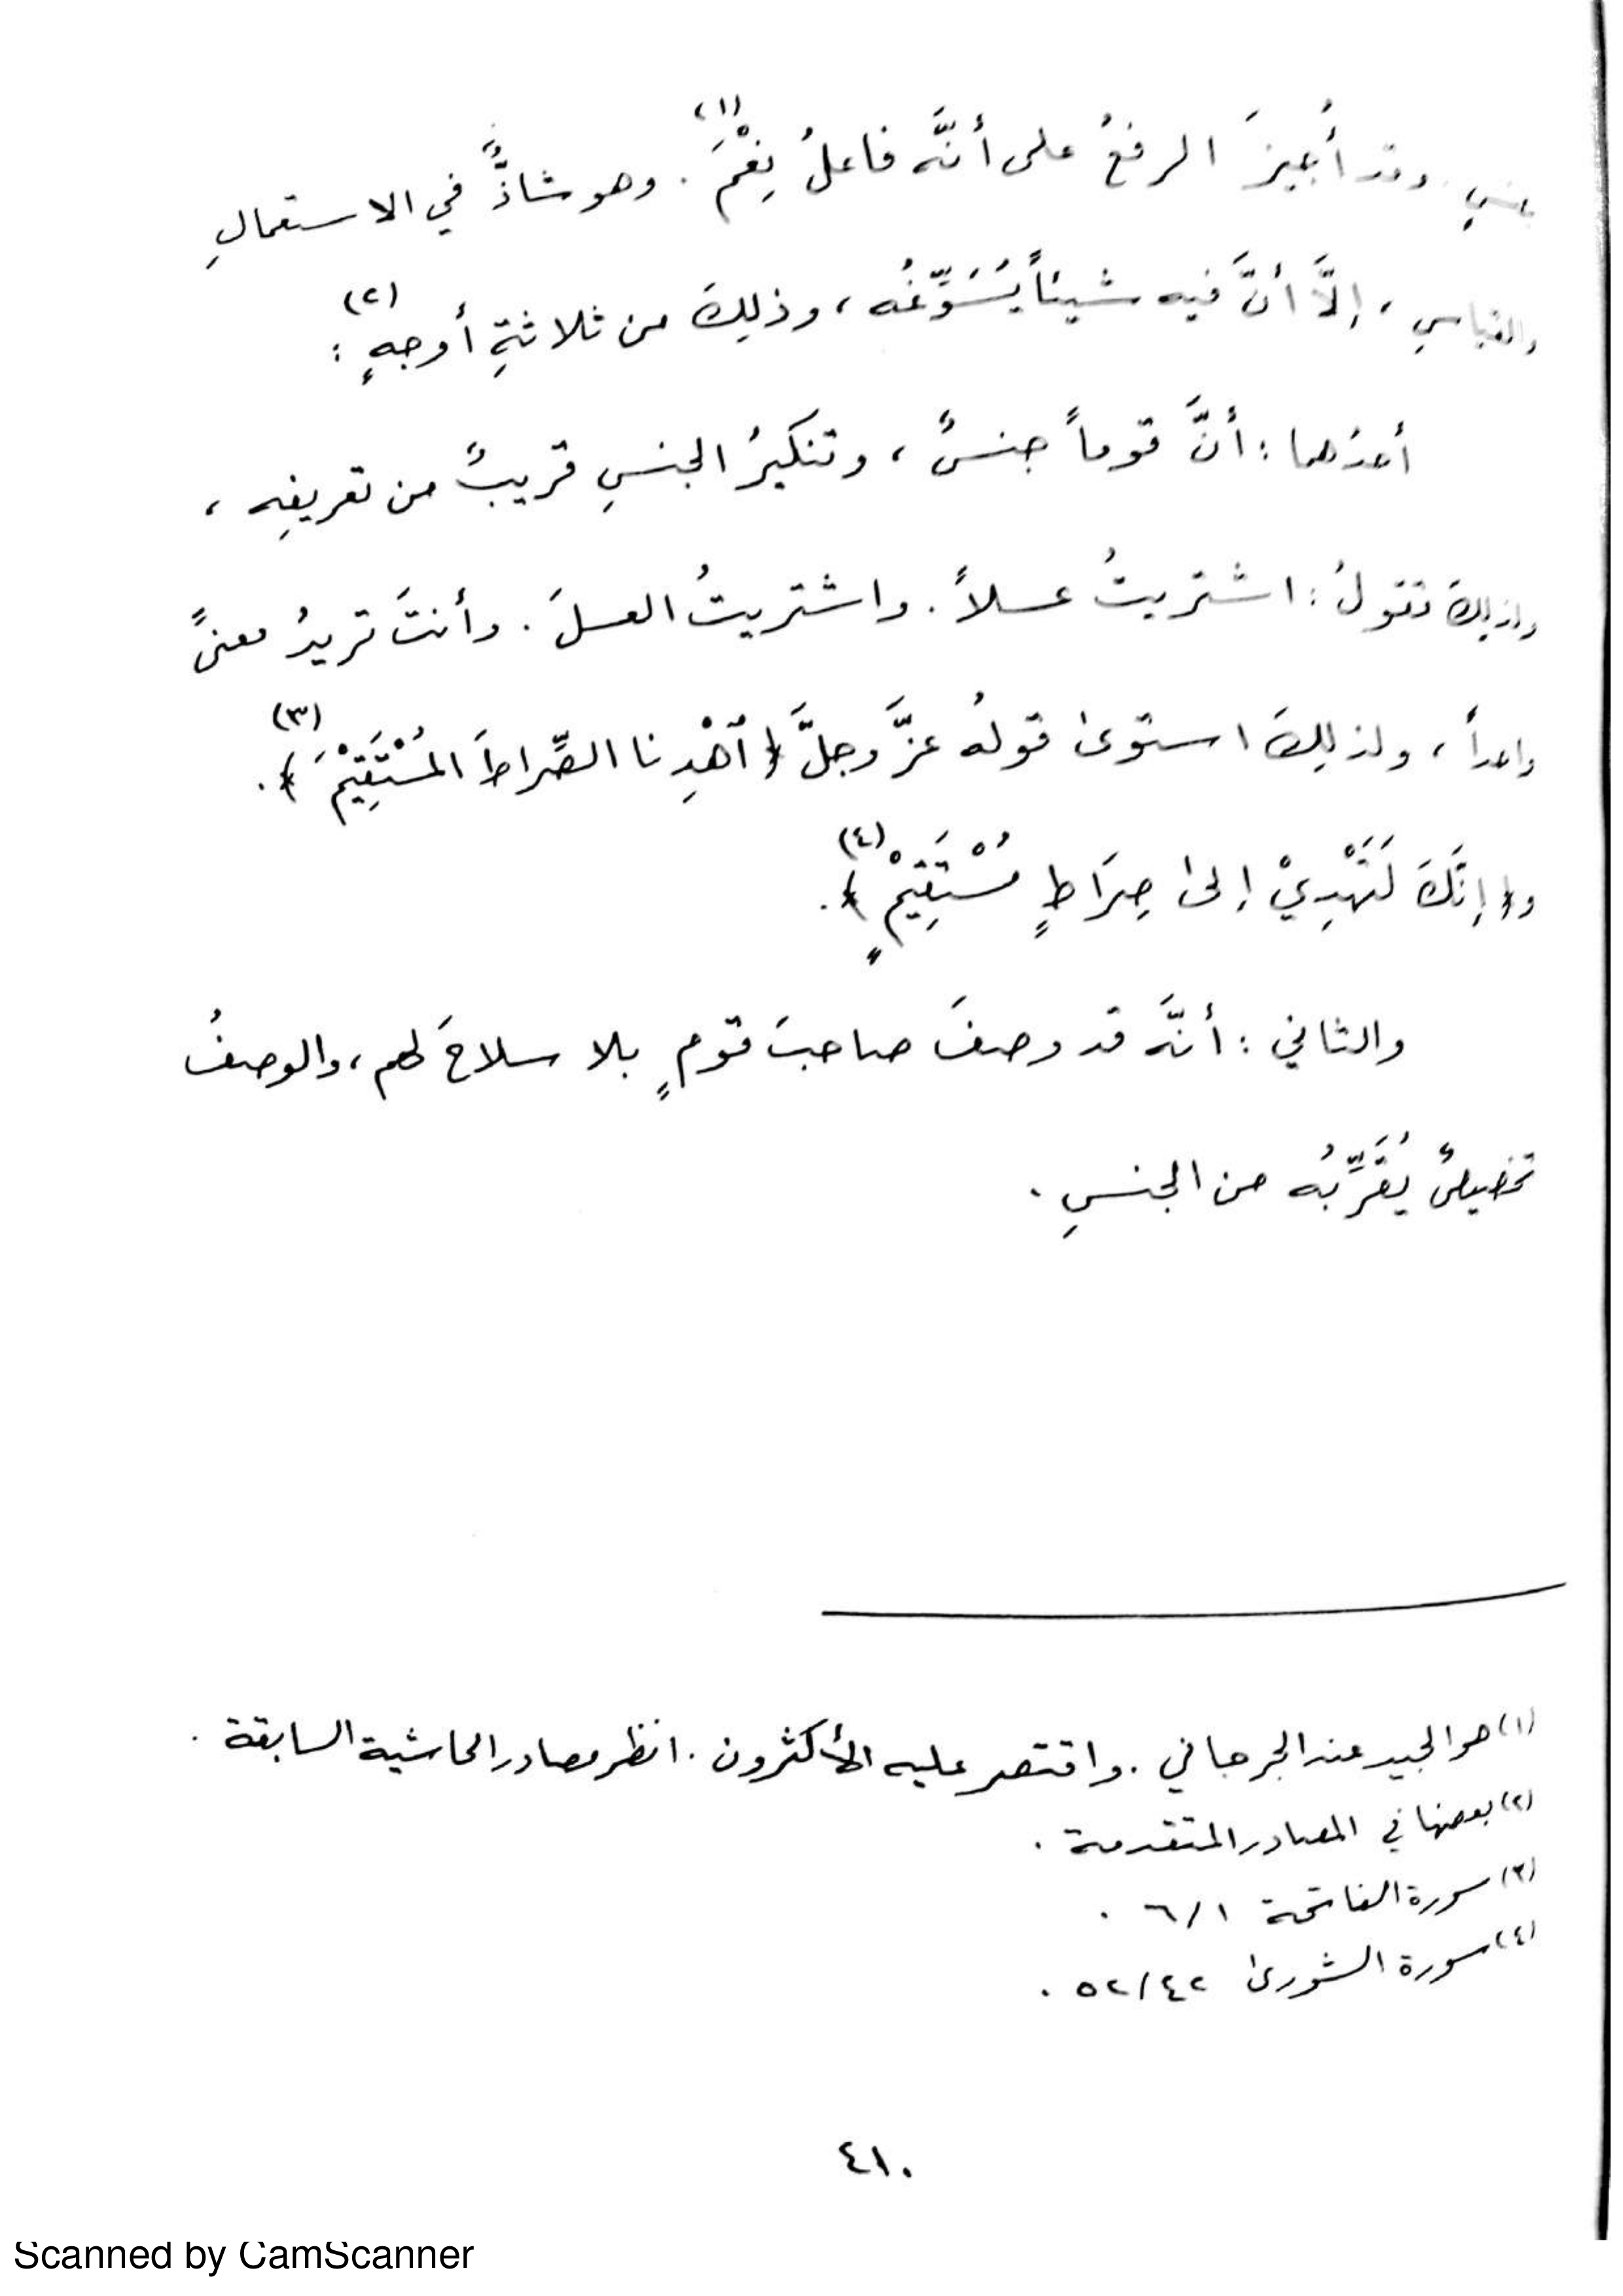 بشيءٍ. وقد أُجيزَ الرفعُ على أنَّه فاعلُ نِعْمَ(١). وهو شاذٌّ في الاستعمالِ
والقياسِ، إلَّا أنَّ فيه شيئاً يُسَوِّغُه، وذلِكَ من ثلاثةِ أوجهٍ(٢):
أحدُهما: أنَّ قوماً جنسٌ، وتنكيرُ الجنسِ قريبٌ من تعريفِه،
ولذلِكَ تقولُ: اشتريتُ عسلاً. واشتريتُ العسلَ. وأنتَ تريدُ معنىً
واحداً، ولذلِكَ استوىٰ قولُه عزَّ وجلَّ ﴿ ٱهْدِنا الصِّراطَ المُسْتَقِيْمَ ﴾(٣).
و﴿ إِنَّكَ لَتَهْدِيْ إلىٰ صِرَاطٍ مُسْتَقِيْمٍ ﴾(٤).
والثاني: أنَّه قد وصفَ صاحبَ قومٍ بلا سلاحَ لهم، والوصفُ
تخصيصٌ يُقَرِّبُه من الجنسِ.
(١) هو الجيد عند الجرجاني. واقتصر عليه الأكثرون. انظر مصادر الحاشية السابقة.
(٢) بعضها في المصادر المتقدمة.
(٣) سورة الفاتحة ٦/١.
(٤) سورة الشورىٰ ٥٢/٤٢.
٤١٠
Scanned by CamScanner